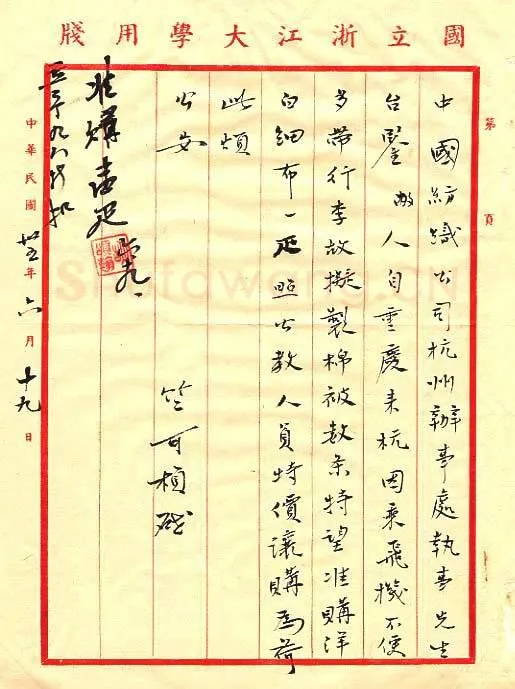 國立浙江大學用牋
第 頁
中國紡織公司杭州辦事處執事先生
台鑒敝人自重慶来杭因乘飛機不便
多帶行李故擬製棉被数条特望准購洋
白細布一疋照公教人員特價讓購為荷
此頌
公安
竺可楨啟
准購壹疋
中華民國卅五年六月十九日